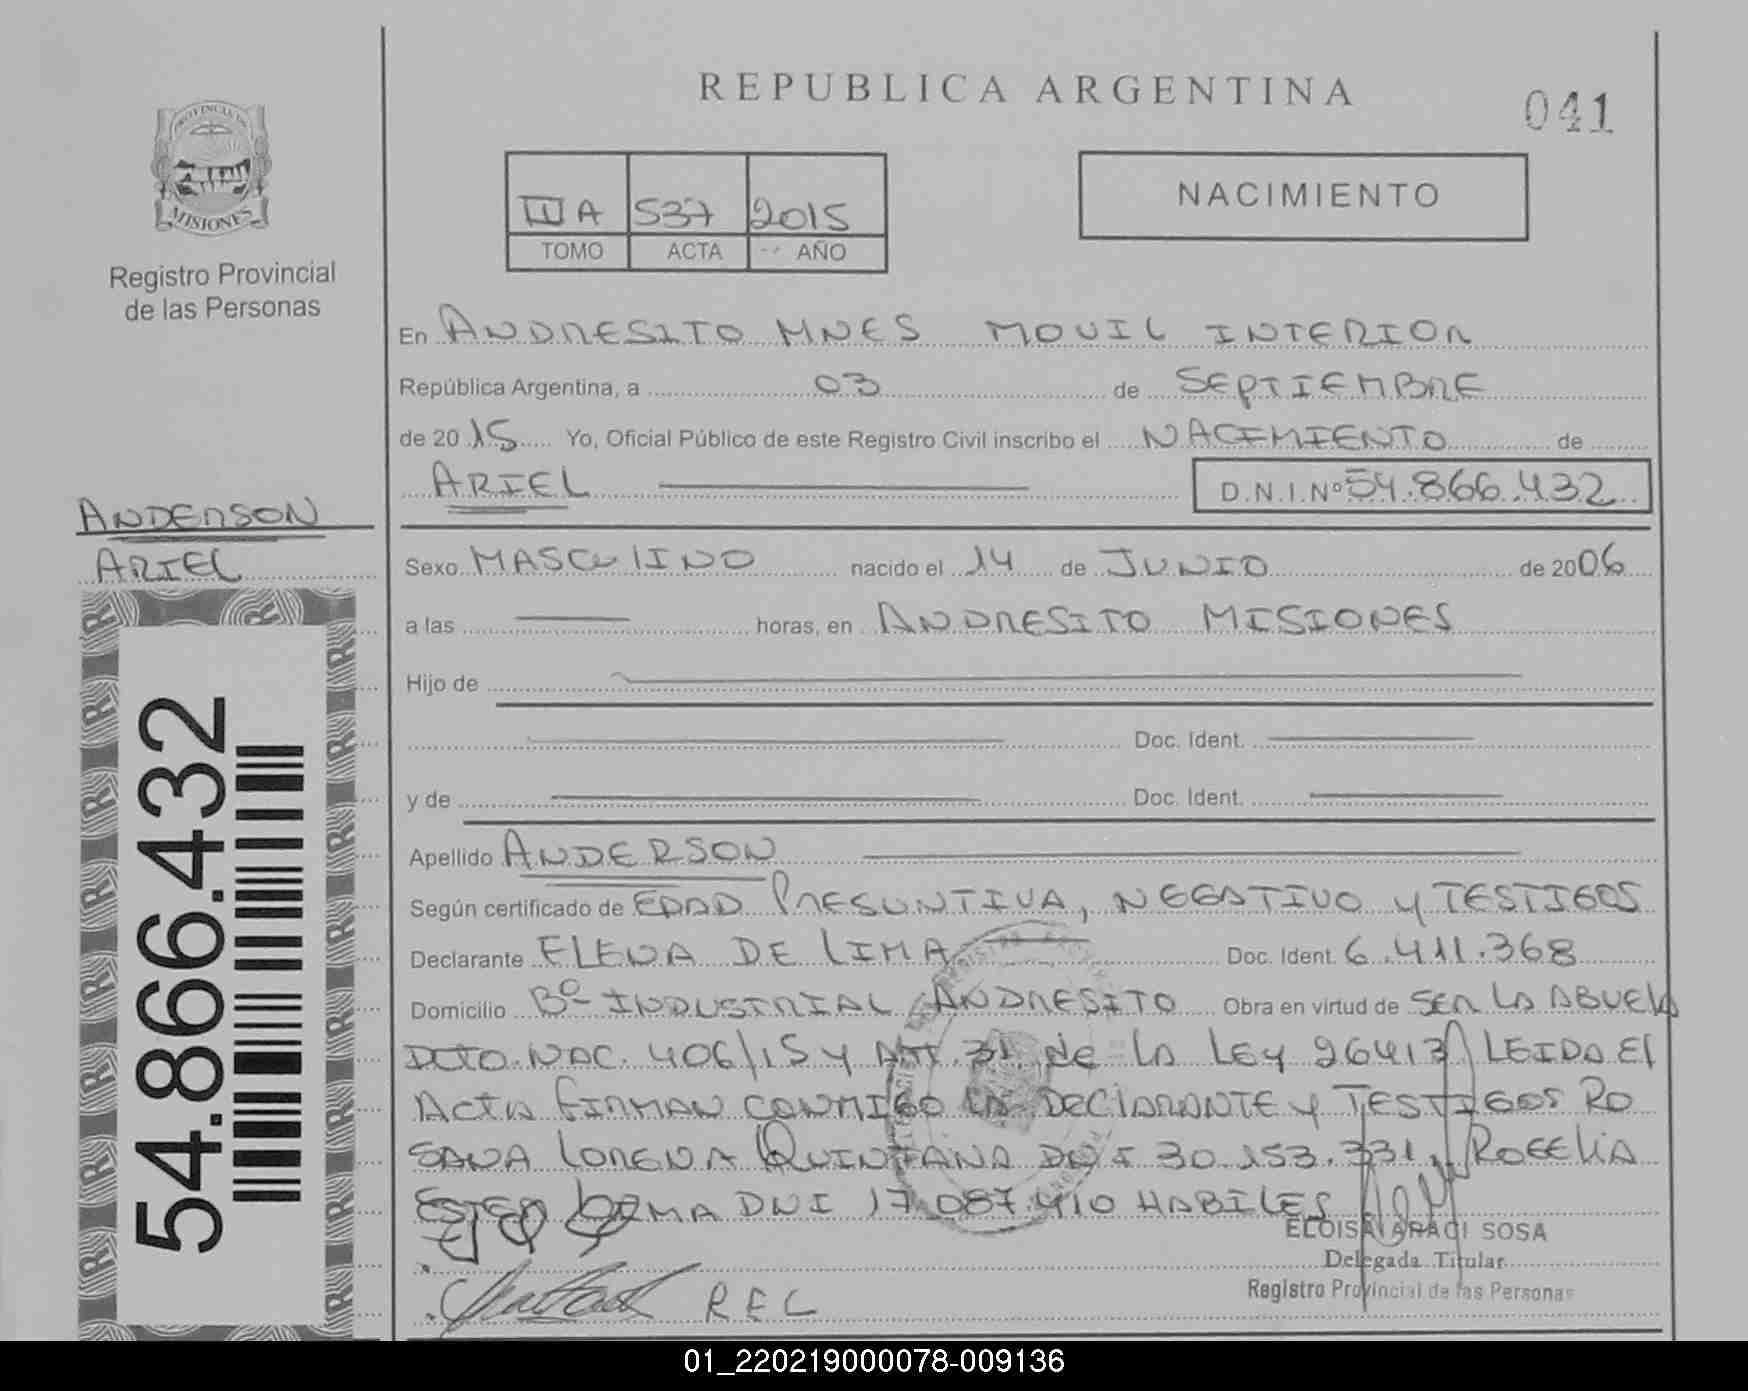 REPUBLICA ARGENTINA
041
PROVINCIA DE
MISIONES
Registro Provincial
de las Personas
III A 537 2015
TOMO ACTA AÑO
NACIMIENTO
En ANDRESITO MNES MOVIL INTERIOR
República Argentina, a 03 de SEPTIEMBRE
de 2015 Yo, Oficial Público de este Registro Civil inscribo el NACIMIENTO de
ARIEL D.N.I. Nº 54.866.432
ANDERSON
ARIEL
Sexo MASCULINO nacido el 14 de JUNIO de 2006
a las horas, en ANDRESITO MISIONES
Hijo de
Doc. Ident.
y de Doc. Ident.
Apellido ANDERSON
Según certificado de EDAD PRESUNTIVA, NEGATIVO y TESTIGOS
Declarante ELENA DE LIMA Doc. Ident. 6.411.368
Domicilio Bº INDUSTRIAL ANDRESITO Obra en virtud de SER LA ABUELA
DCTO. NAC. 406/15 Y ART. 31 de LA LEY 26413 LEIDA El
Acta FIRMAN CONMIGO LA DECLARANTE y TESTIGOS RO
SANA LORENA QUINTANA DNI 30.153.331, ROGELIA
ESTER DNI 17.087.410 HABILES
ELOISA ARACI SOSA
Delegada Titular
Registro Provincial de las Personas
R E L
54.866.432
01_220219000078-009136